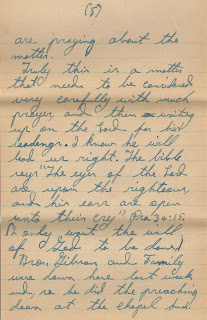 (5)
are praying about the
matter.
Truly this is a matter
that needs to be considered
very carefully with much
prayer, and then waiting
up on the Lord for his
leadings. I know he will
lead us right. The bible
says "The eyes of the Lord
are upon the righteous,
and his ears are open
unto their cry" Psa 34:15.
I only want the will
of God to be done!
Bro. Gibson and Family
were down here last week
end, so he did the preaching
down at the chapel Sun.